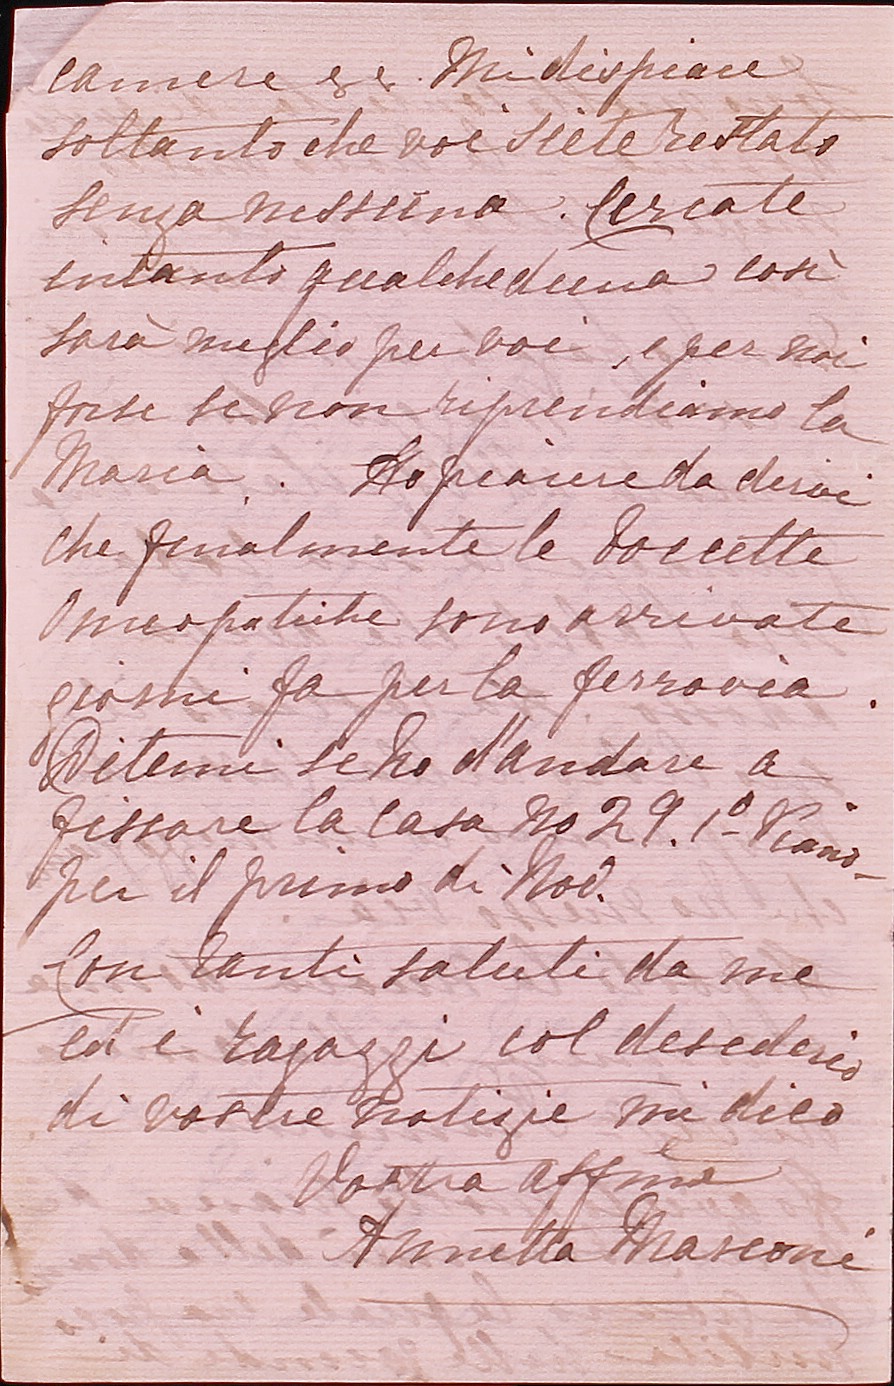 camere ec. Mi dispiace
soltanto che voi siete restato
senza nessuna. Cercate
intanto qualcheduna così
sarà meglio per voi, e per noi
forse se non riprendiamo la
Maria. Ho piacere da dirvi
che finalmente le boccette
Omeopatiche sono arrivate
giorni fa per la ferrovia.
Ditemi se ho d'andare a
fissare la casa No 29. 1º Piano
per il primo di Nov.
Con tanti saluti da me
ed i ragazzi col desederio
di vostre notizie mi dico
Vostra affma
Annetta Masconi